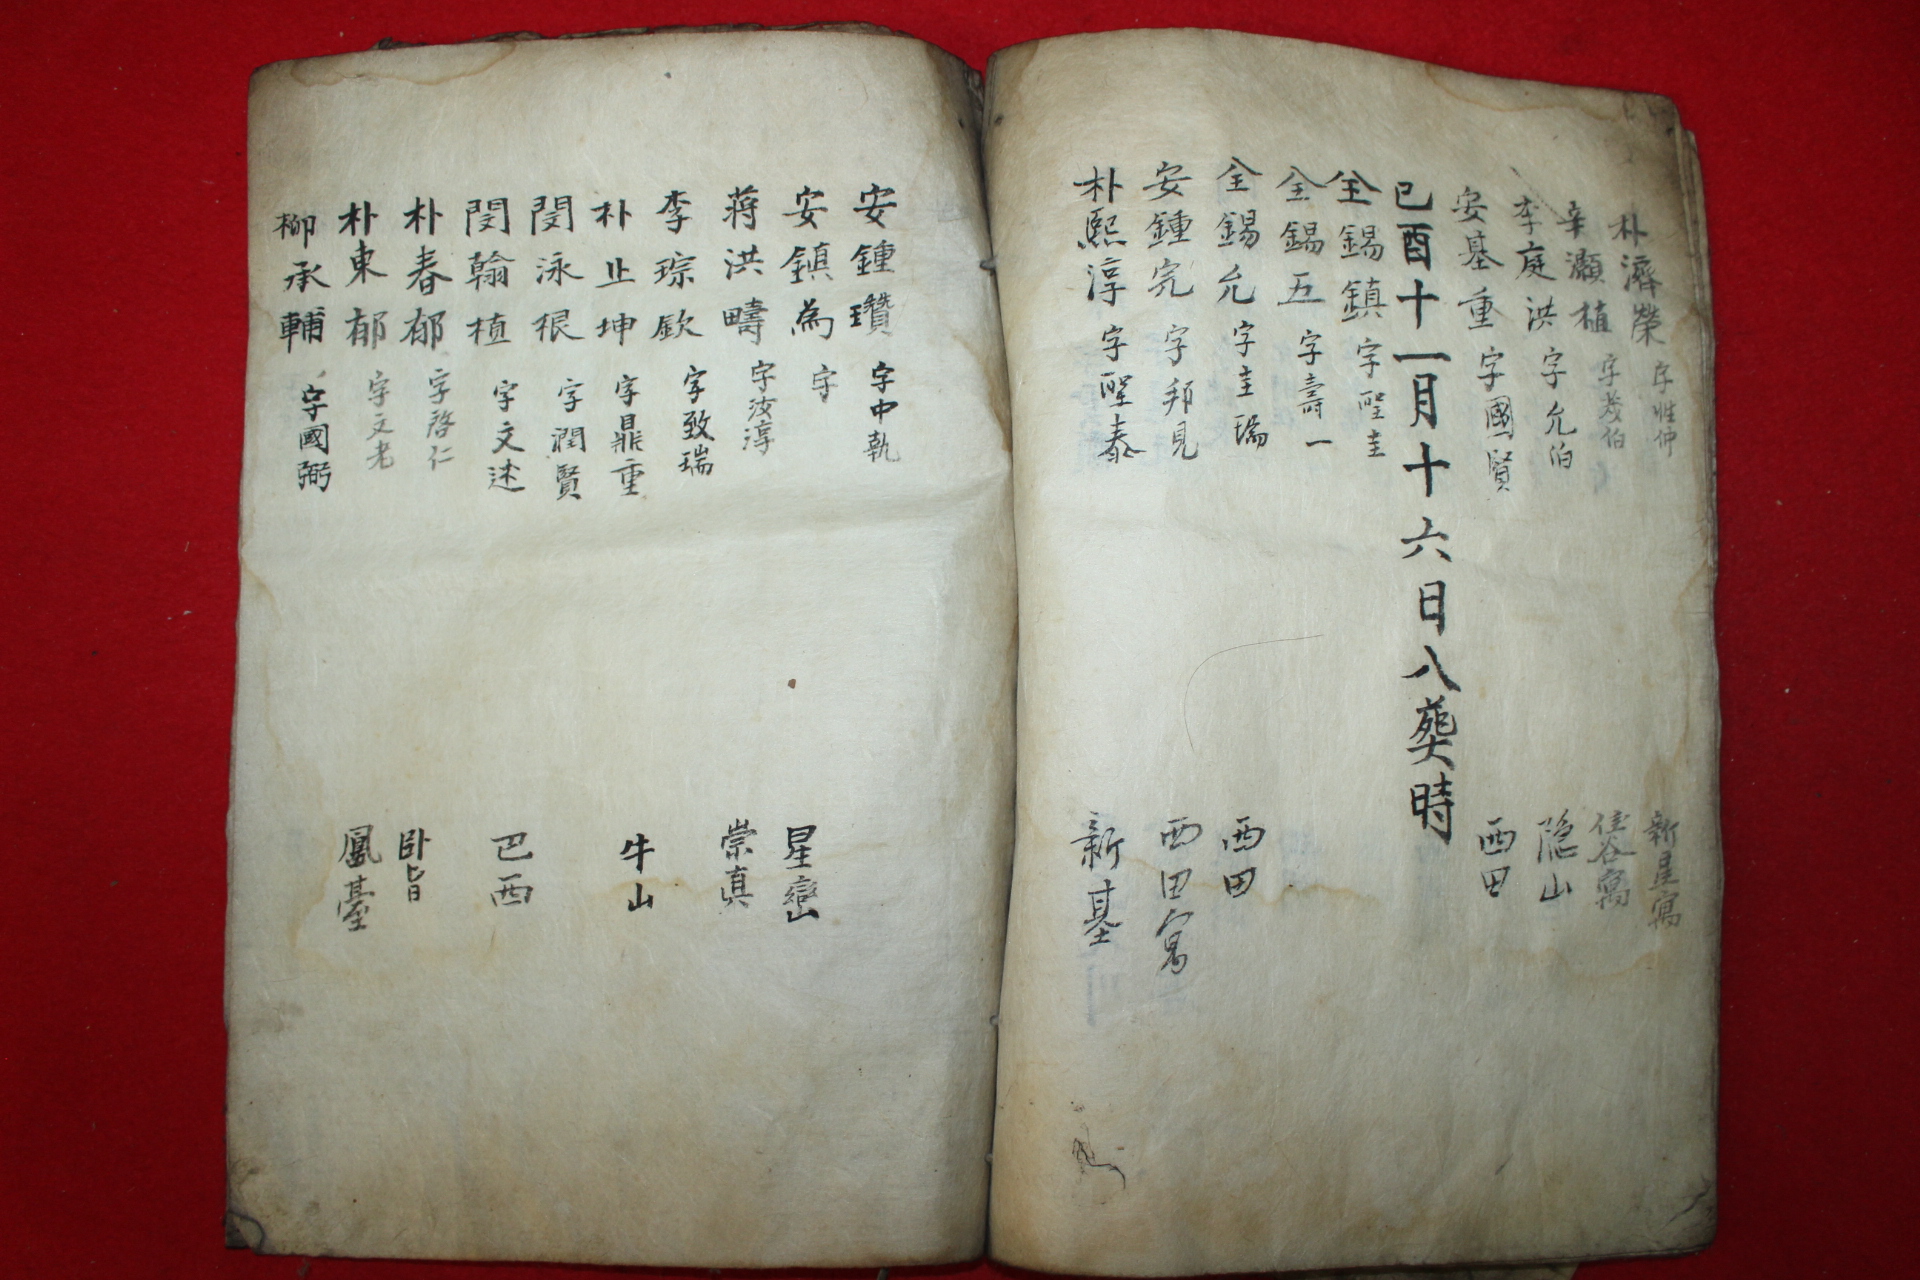 朴濟榮 字惟仲 新星寓
辛灝植 字茂伯 佳谷寓
李庭洪 字允伯 隐山
安基重 字國賢 西田
己酉十一月十六日入葬時
全錫鎮 字聖圭
全錫五 字壽一
全錫允 字圭瑞 西田
安鍾完 字邦見 西田寓
朴熙淳 字聖泰 新基
安鍾瓚 字中執
安鎮為 字 星巒
蔣洪疇 字汝淳 崇真
李琮欽 字致瑞
朴止坤 字鼎重 牛山
閔泳根 字潤賢
閔翰植 字文述 巴西
朴春郁 字啓仁
朴東郁 字文老 卧旨
柳承輔 字國弼 鳳臺